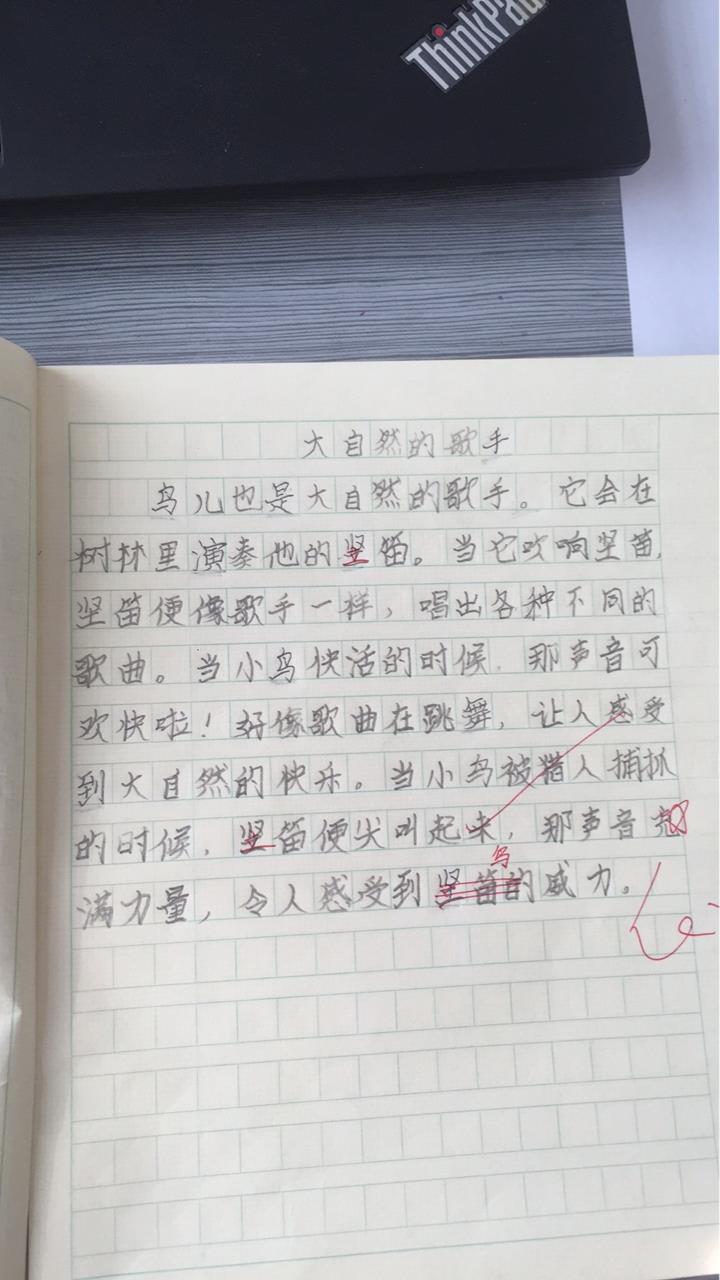 ThinkPad
大自然的歌手
鸟儿也是大自然的歌手。它会在
树林里演奏他的竖笛。当它吹响竖笛,
竖笛便像歌手一样，唱出各种不同的
歌曲。当小鸟快活的时候，那声音可
欢快啦！好像歌曲在跳舞，让人感受
到大自然的快乐。当小鸟被猎人捕抓
的时候，竖笛便尖叫起来，那声音充
鸟
满力量，令人感受到竖笛的威力。